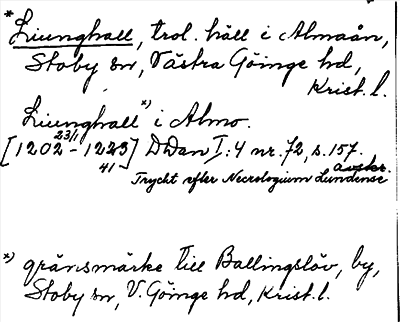 * Liunghall, trol. häll i Almaån,
Stoby sn, Västra Göinge hd,
Krist. l.
Liunghall *) i Almo.
[1202 23/1 - 1223] DDan I:4 nr. 72, s. 157.
41 avskr.
Tryckt efter Necrologium Lundense
*) gränsmärke till Ballingslöv, by,
Stoby sn, V. Göinge hd, Krist. l.